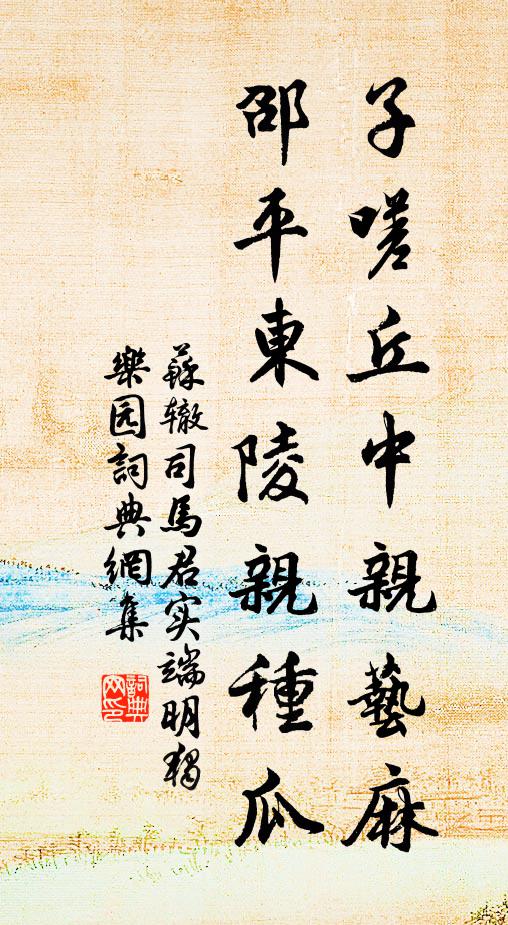 子嗟丘中親藝麻
邵平東陵親種瓜
蘇辙司馬君实端明独
樂园詞典網集
詞典网印